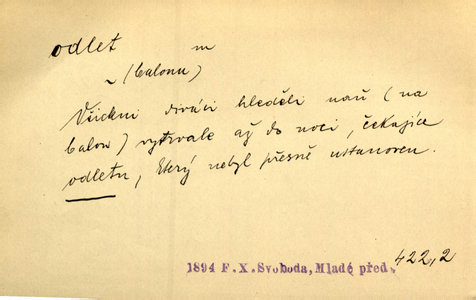 odlet m
~ (balonu)
Všickni diváci hleděli naň (na
balon) vytrvale až do noci, čekajíce
odletu, který nebyl přesně ustanoven.
1894 F. X. Svoboda, Mladé před. 422,2